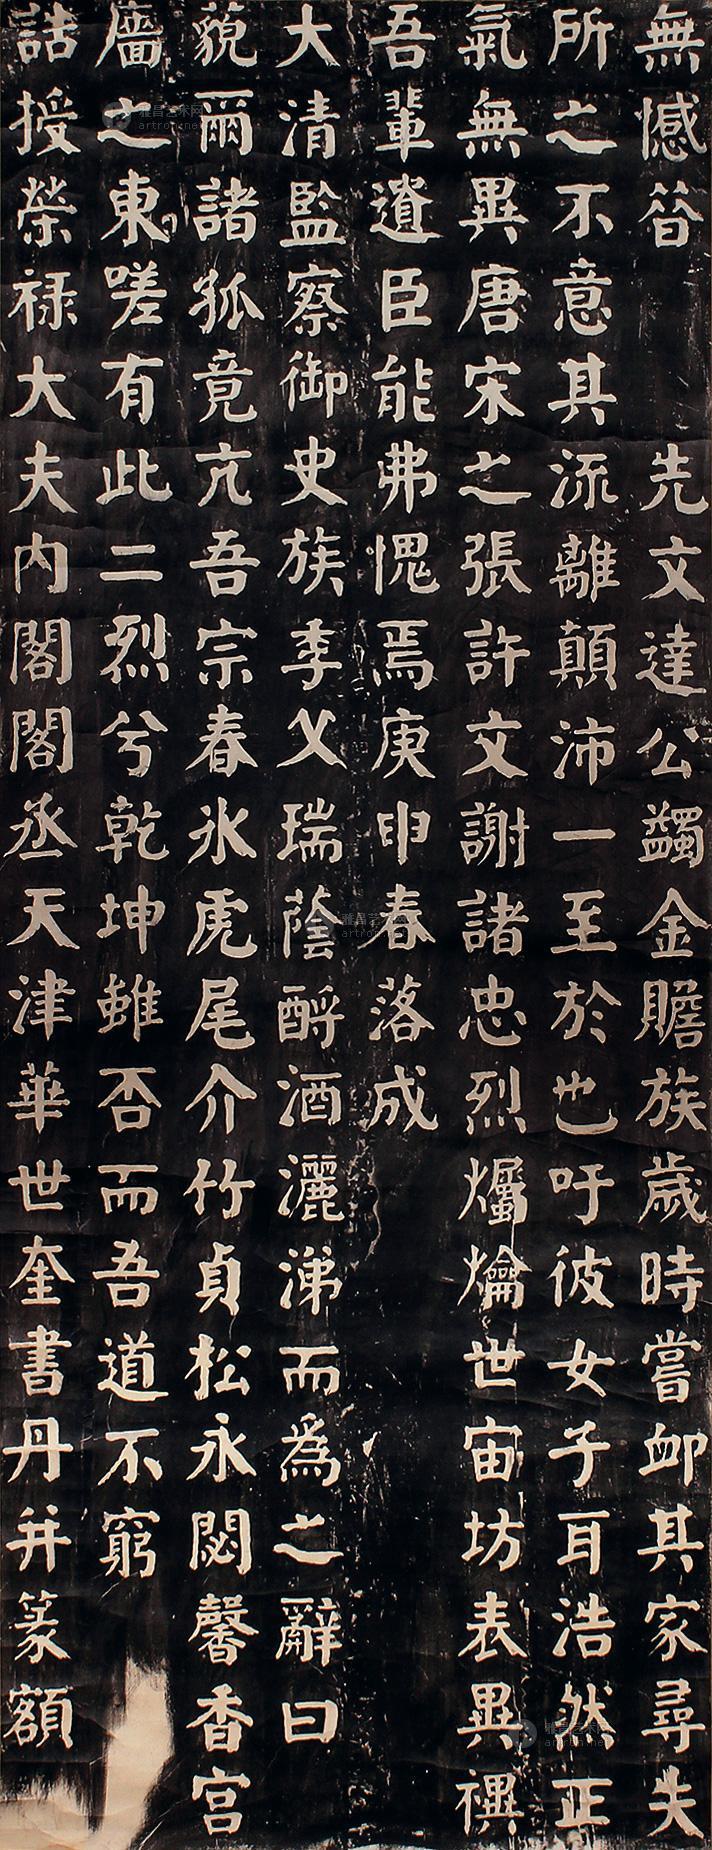 無憾㫺　先文達公蠲金贍族歲時嘗卹其家尋失
所之不意其流離顛沛一至於也吁彼女子耳浩然正
氣無異唐宋之張許文謝諸忠烈爥爚世宙坊表異禩
吾輩遺臣能弗愧焉庚申春落成
大清監察御史族季父瑞蔭酹酒灑涕而爲之辭曰
藐爾諸孤竟亢吾宗春氷虎尾介竹貞松永閟馨香宮
廧之東嗟有此二烈兮乾坤雖否而吾道不窮
誥授榮禄大夫内閣閣丞天津華世奎書丹并篆額
雅昌艺术网
artron.net
雅昌艺术网
artron.net
雅昌艺术网
artron.net